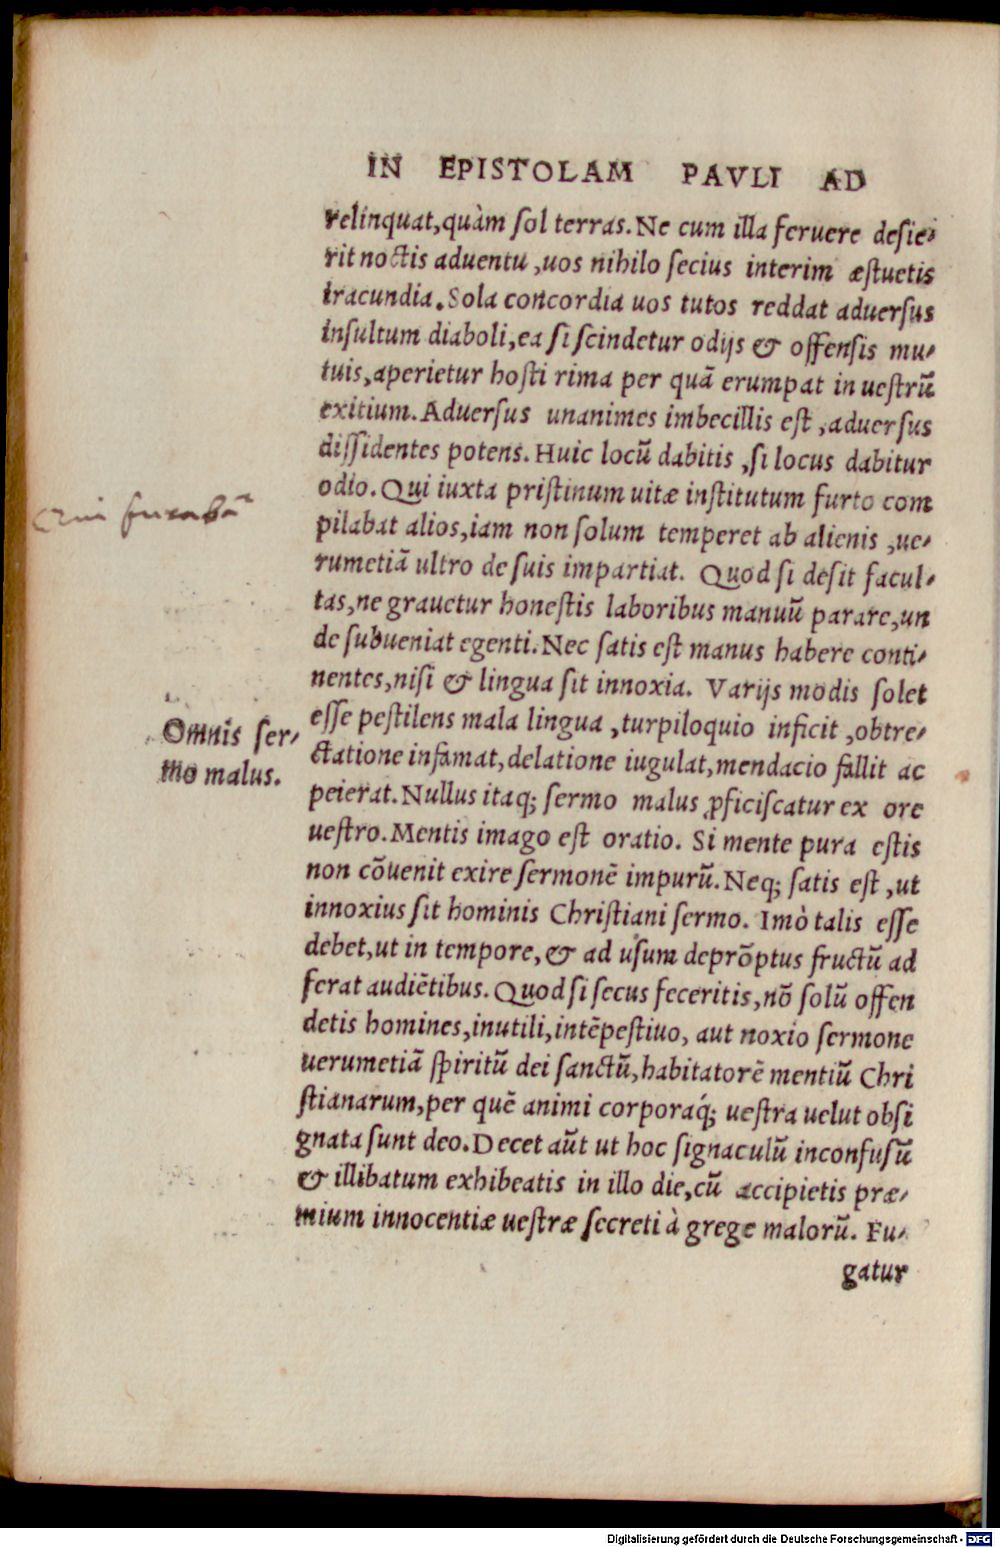 IN EPISTOLAM PAVLI AD
relinquat,quàm ſol terras.Ne cum illa feruere deſie-
rit noctis aduentu,uos nihilo ſecius interim æſtuetis
iracundia.Sola concordia uos tutos reddat aduerſus
inſultum diaboli,ea ſi ſcindetur odijs & offenſis mu-
tuis,aperietur hoſti rima per quã erumpat in ueſtrũ
exitium.Aduerſus unanimes imbecillis eſt,aduerſus
diſſidentes potens.Huic locũ dabitis,ſi locus dabitur
odio.Qui iuxta priſtinum uitæ inſtitutum furto com
Qui furabã
pilabat alios,iam non ſolum temperet ab alienis,ue-
rumetiã ultro de ſuis impartiat. Quod ſi deſit facul-
tas,ne grauetur honeſtis laboribus manuũ parare,un
de ſubueniat egenti.Nec ſatis eſt manus habere conti-
nentes,niſi & lingua ſit innoxia. Varijs modis ſolet
eſſe peſtilens mala lingua,turpiloquio inficit,obtre-
Omnis ſer-
mo malus.
ctatione infamat,delatione iugulat,mendacio fallit ac
peierat.Nullus itaq; ſermo malus ꝓficiſcatur ex ore
ueſtro.Mentis imago eſt oratio. Si mente pura eſtis
non cõuenit exire ſermonẽ impurũ.Neq; ſatis eſt,ut
innoxius ſit hominis Chriſtiani ſermo. Imò talis eſſe
debet,ut in tempore,& ad uſum deprõptus fructũ ad
ferat audiẽtibus.Quod ſi ſecus feceritis,nõ ſolũ offen
detis homines,inutili,intẽpeſtiuo, aut noxio ſermone
uerumetiã ſpiritũ dei ſanctũ,habitatorẽ mentiũ Chri
ſtianarum,per quẽ animi corporaq́; ueſtra uelut obſi
gnata ſunt deo.Decet aũt ut hoc ſignaculũ inconfuſũ
& illibatum exhibeatis in illo die,cũ accipietis præ-
mium innocentiæ ueſtræ ſecreti à grege malorũ. Fu-
gatur
Digitalisierung gefördert durch die Deutsche Forschungsgemeinschaft - DFG